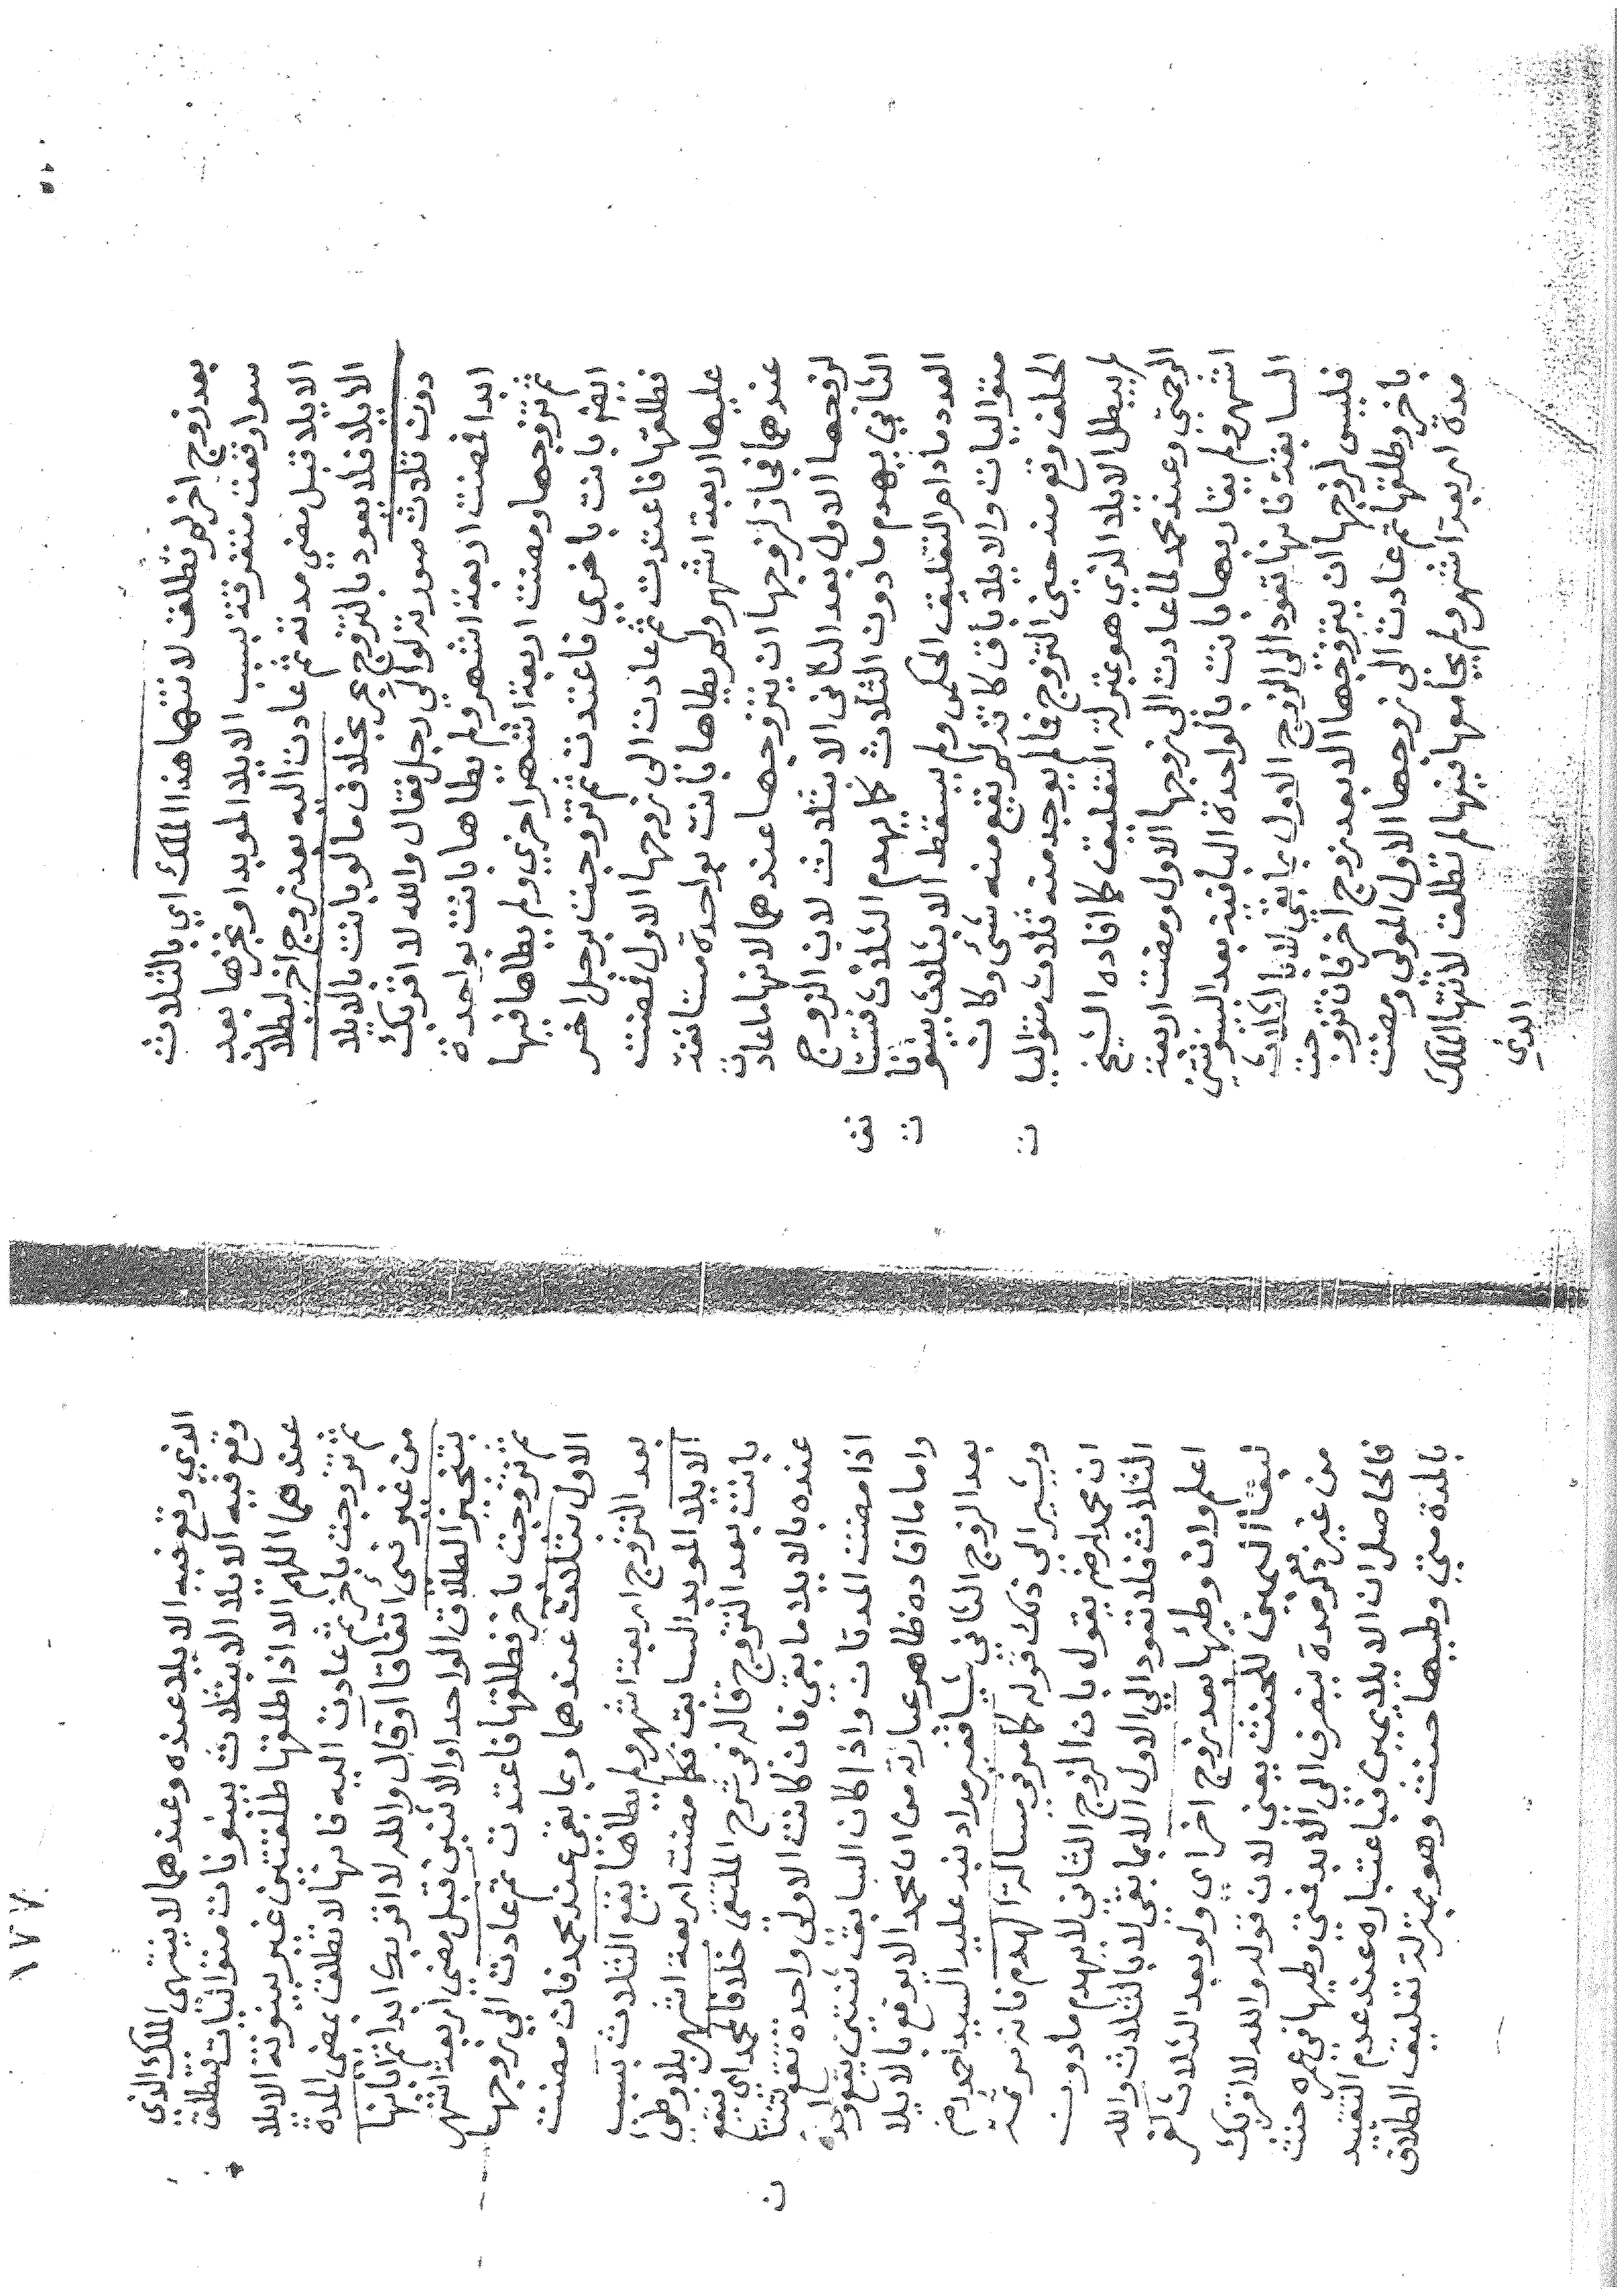 بعد زوج اخر لم تطلق لانتها هذا الملك اي بالثلاث
سوا وقعت متفرقة بسبب الايلا الموبد او نجزها بعد
الايلا قبل مضي مدته ثم عادت اليه بعد زوج اخر لبطلان
الايلا فلا يعود بالتزوج بحر بخلاف ما لو بانت بالايلا
دون ثلاث صورته توالى رجل فقال والله لا اقربك
ابدا فمضت اربعة اشهر ولم يطاها بانت بواحدة
ثم تزوجها ومضت اربعة اشهر اخري ولم يطاها فيها
ايضا بانت باخرى فاعتدت ثم تزوجت برجل اخر
فطلقها فاعتدت ثم عادت الى زوجها الاول فمضت
عليها اربعة اشهر ولم يطاها بانت بواحدة مستانفة
عندهما فجاز لزوجها ان يتزوجها عندهما لانها ما عادت
لزوجها الاول بعد الثاني الا بثلاث لان الزوج
الثاني يهدم ما دون الثلاث كما يهدم الثلاث فتبقا
العدد ما دام التعليق الحكمي ولم يسقط الا بثلاث بينونا
متواليات والايلا باق كانه لم يقع منه شئ وكان
الحلف وقع منه حين التزوج فما لم يوجد منه ثلاث متوالية
لم يبطل الايلا الذي هو بمنزلة التعليق كما افاده الشيخ
الرحمتي وعند محمد لما عادت الى زوجها الاول ومضت اربعة
اشهر ولم يقاربها بانت بالواحدة الباقية بعد البينونتين
السابقتين فانها تعود الى الزوج الاول بما بقى لا بالثلاث
فليس لزوجها ان يتزوجها الا بعد زوج اخر فان تزوجت
باخر وطلقها ثم عادت الى زوجها الاول المولى ومضت
مدة اربعة اشهر ولم يجامعها فيها لم تطلق لانتها الملك
الذي
١٧٧
الذي وقع فيه الايلا عنده وعندهما لا ينتهى الملك الذي
وقع فيه الايلا الا بثلاث بينونات متواليات تطلق
عندهما اللهم الا اذا طلقها طلقتين غير بينونة الايلا
ثم تزوجت باخر ثم عادت اليه فانها لا تطلق بمضى المدة
من غير شئ اتفاقا او قال والله لا اقربك ابدا ثم ابانها
بتنجيز الطلاق الواحد او الاثنين قبل مضي اربعة اشهر
ثم تزوجت باخر فطلقها فاعتدت ثم عادت الي زوجها
الاول بثلاث عندهما وبما بقى عند محمد فان مضت
بعد التزوج اربعة اشهر ولم يطاها يقع الثلاث بسبب
الايلا الموبد السابق فكلما مضت اربعة اشهر بلا وطئ
بانت بعد التزوج قاله في شرح الملتقى خلافا لمحمد اي يقع
عنده بالايلا ما بقى فان كانت الاولى واحدة تقع ثنتا
اذا مضت المدتان واذا كان السابق ثنتين يقع واحدة
واما ما افاده ظاهر عبارته من ان محمدا لا يوقع بالايلا
بعد الزوج الثاني شيا فغير مراد نبه عليه السيد احمد ابن
ويشير الى ذلك قوله كما مر في مسالة الهدم فانه مر ثمة
ان محمدا رضي يقول بان الزوج الثاني لا يهدم ما دون
الثلاث فلا تعود الي الاول الا بما بقى لا بالثلاث والله
اعلم وان وطئها بعد زوج اخر اي ولو بعد الثلاث كفر
لبقا اليمين للحنث يعنى لان قوله والله لا اقربك
من غير ذكر مدة ينصرف الي الابد فمتى وطيها في عمره حنث
فالحاصل ان الايلا يمين فباعتباره عند عدم التقييد
بالمدة متي وطيها حنث وهو بمنزلة تعليق الطلاق